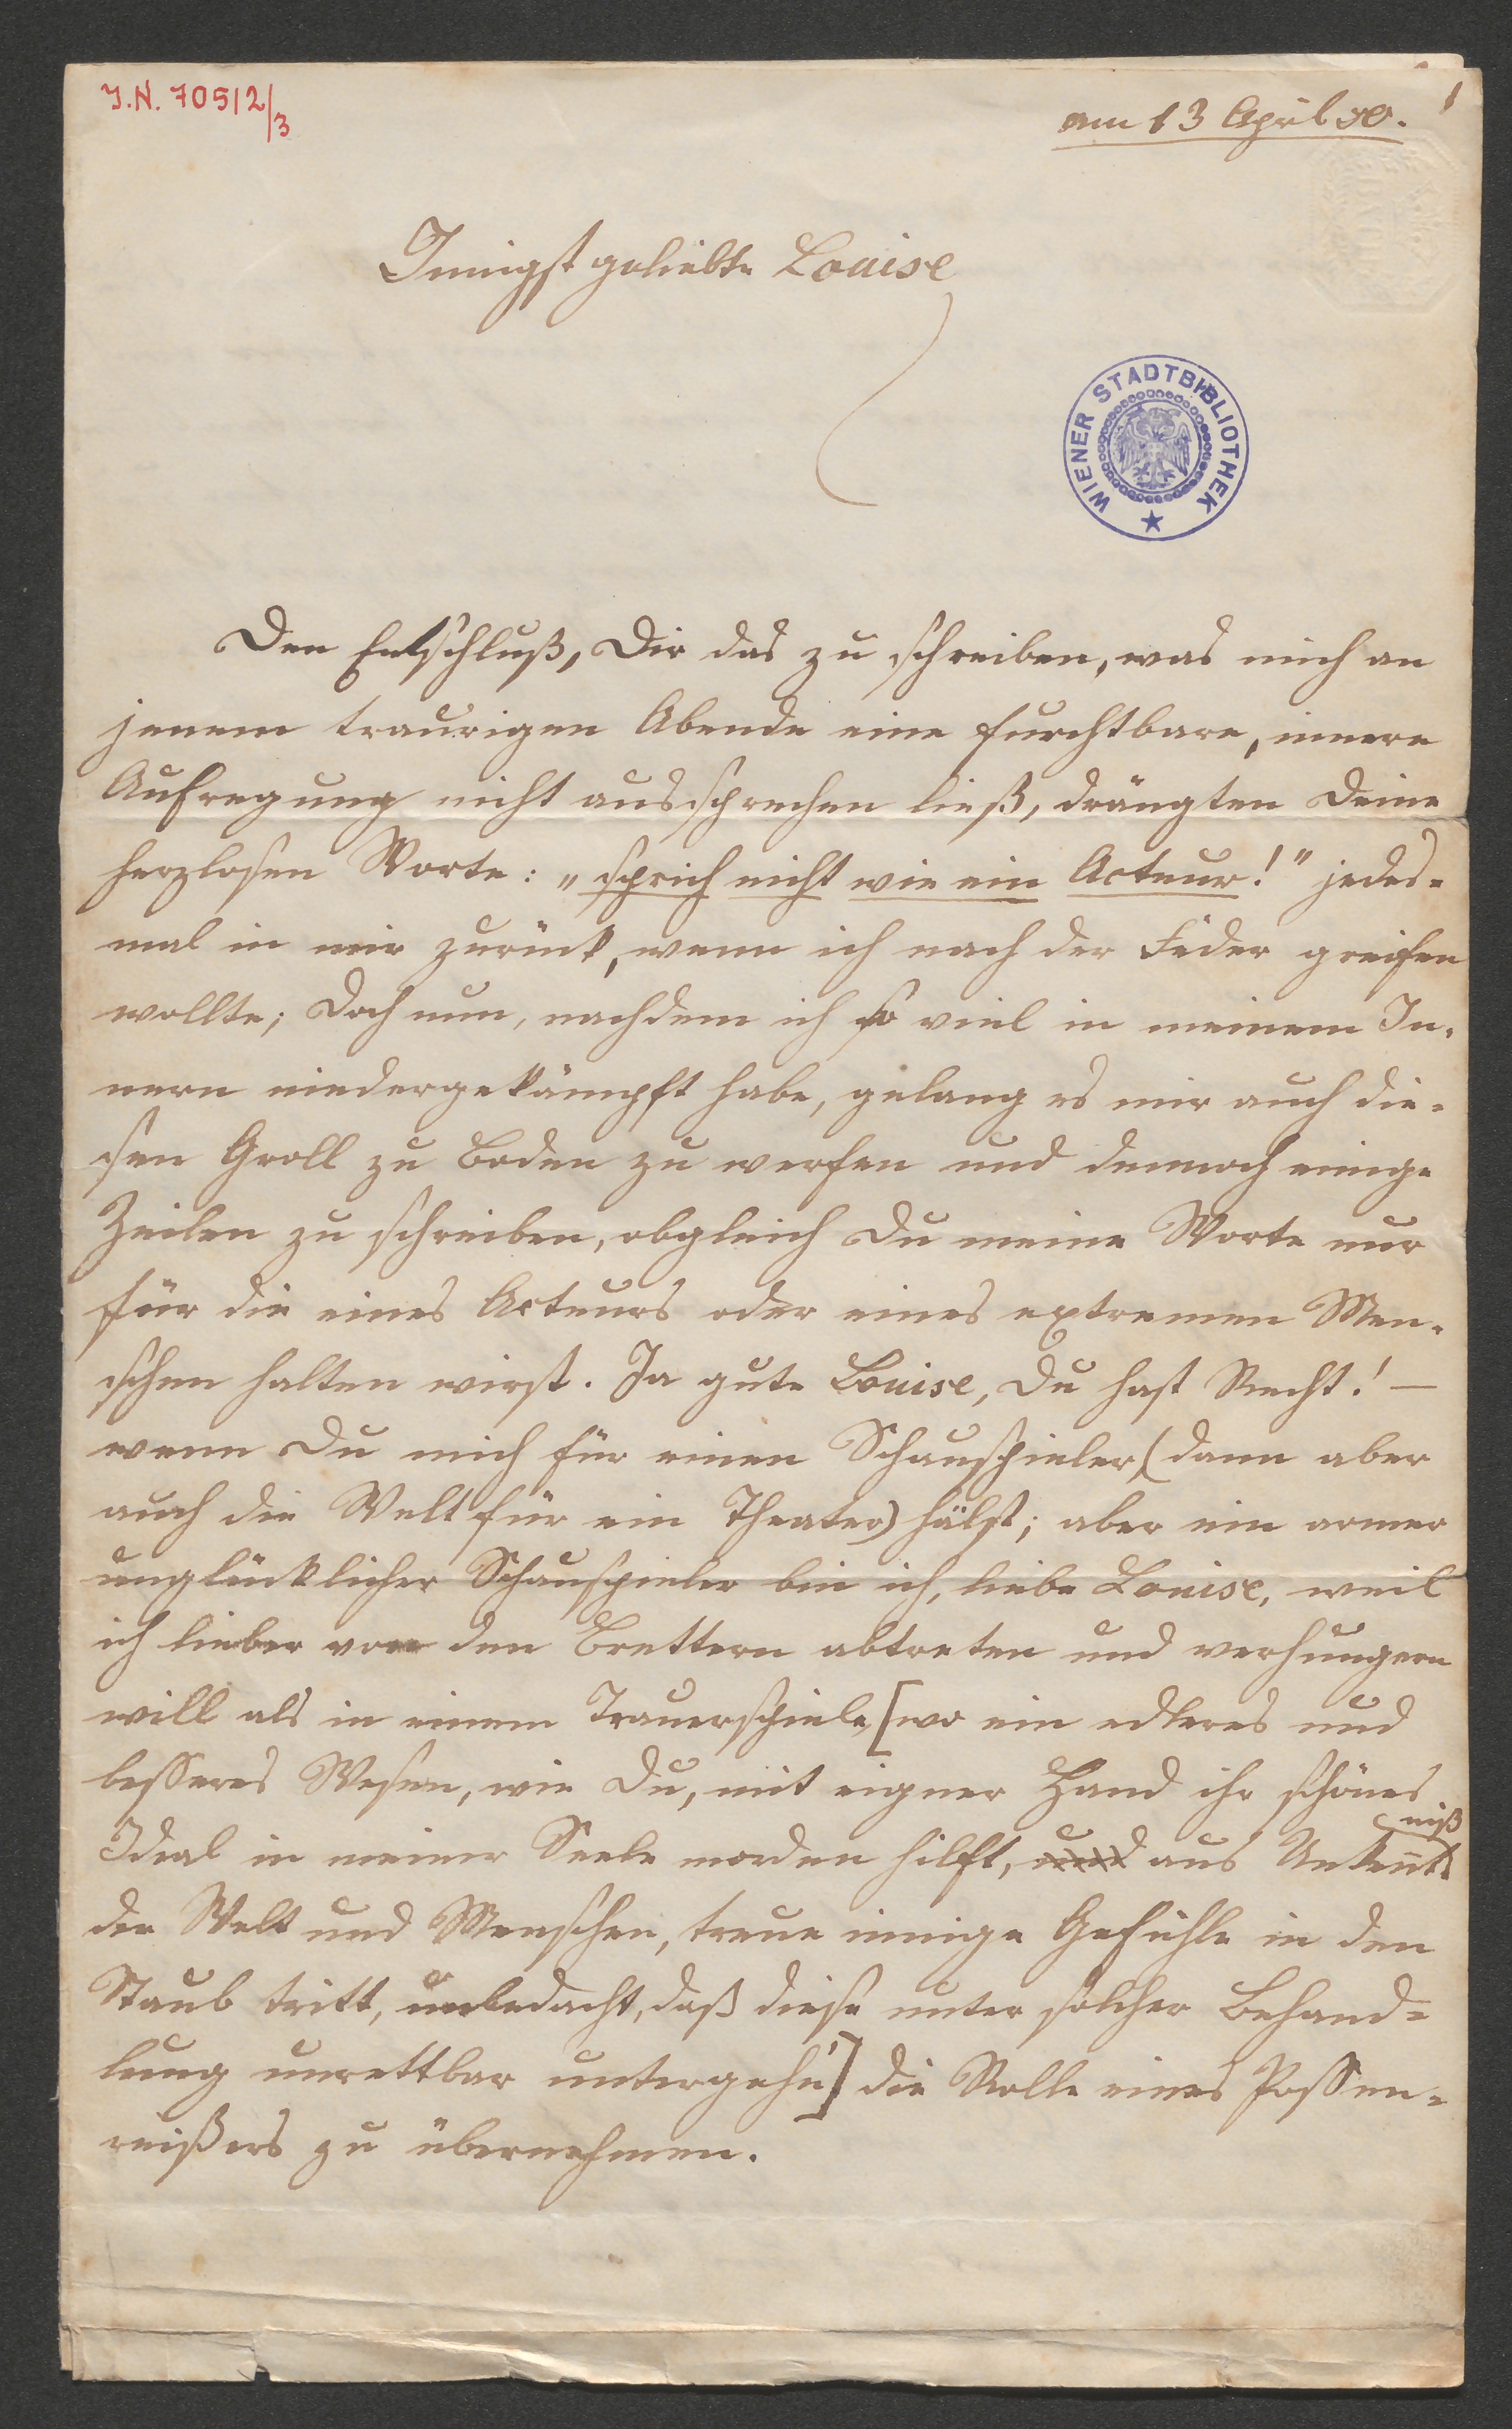 I.N. 70512/3
am 13 April 50.
Innigst geliebte Louise
WIENER STADTBIBLIOTHEK
Den Entschluß, Dir das zu schreiben, was mich an
jenem traurigen Abende eine furchtbare, innere
Aufregung nicht aussprechen ließ, drängten Deine
herzlosen Worte: „sprich nicht wie ein Acteur!" jedes-
mal in mir zurück, wenn ich nach der Feder greifen
wollte; Doch nun, nachdem ich so viel in meinem In-
nern niedergekämpft habe, gelang es mir auch die-
sen Groll zu Boden zu werfen und dennoch einige
Zeilen zu schreiben, obgleich Du meine Worte nur
für die eines Acteurs oder eines extremen Men-
schen halten wirst. Ja gute Louise, Du hast Recht! —
wenn Du mich für einen Schauspieler (dann aber
auch die Welt für ein Theater) hälst; aber ein armer
unglücklicher Schauspieler bin ich, liebe Louise, weil
ich lieber von den Brettern abtreten und verhungern
will als in einem Trauerspiele, [wo ein edleres und
besseres Wesen, wie Du, mit eigner Hand ihr schönes
Ideal in meiner Seele morden hilft, und aus Unkenntniß
der Welt und Menschen, treue innige Gefühle in den
Staub tritt, unbedacht, daß diese unter solcher Behand-
lung unrettbar untergehn] die Rolle eines Possen-
reißers zu übernehmen.